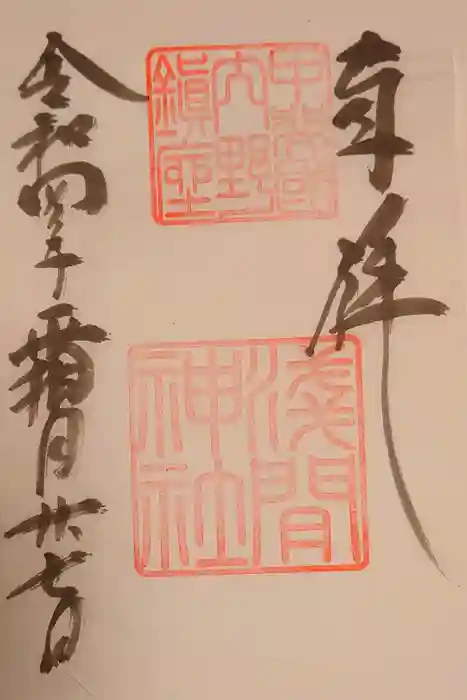 奉拝
甲斐國
内野
鎭座
淺間
神社
令和四年霜月廿七日